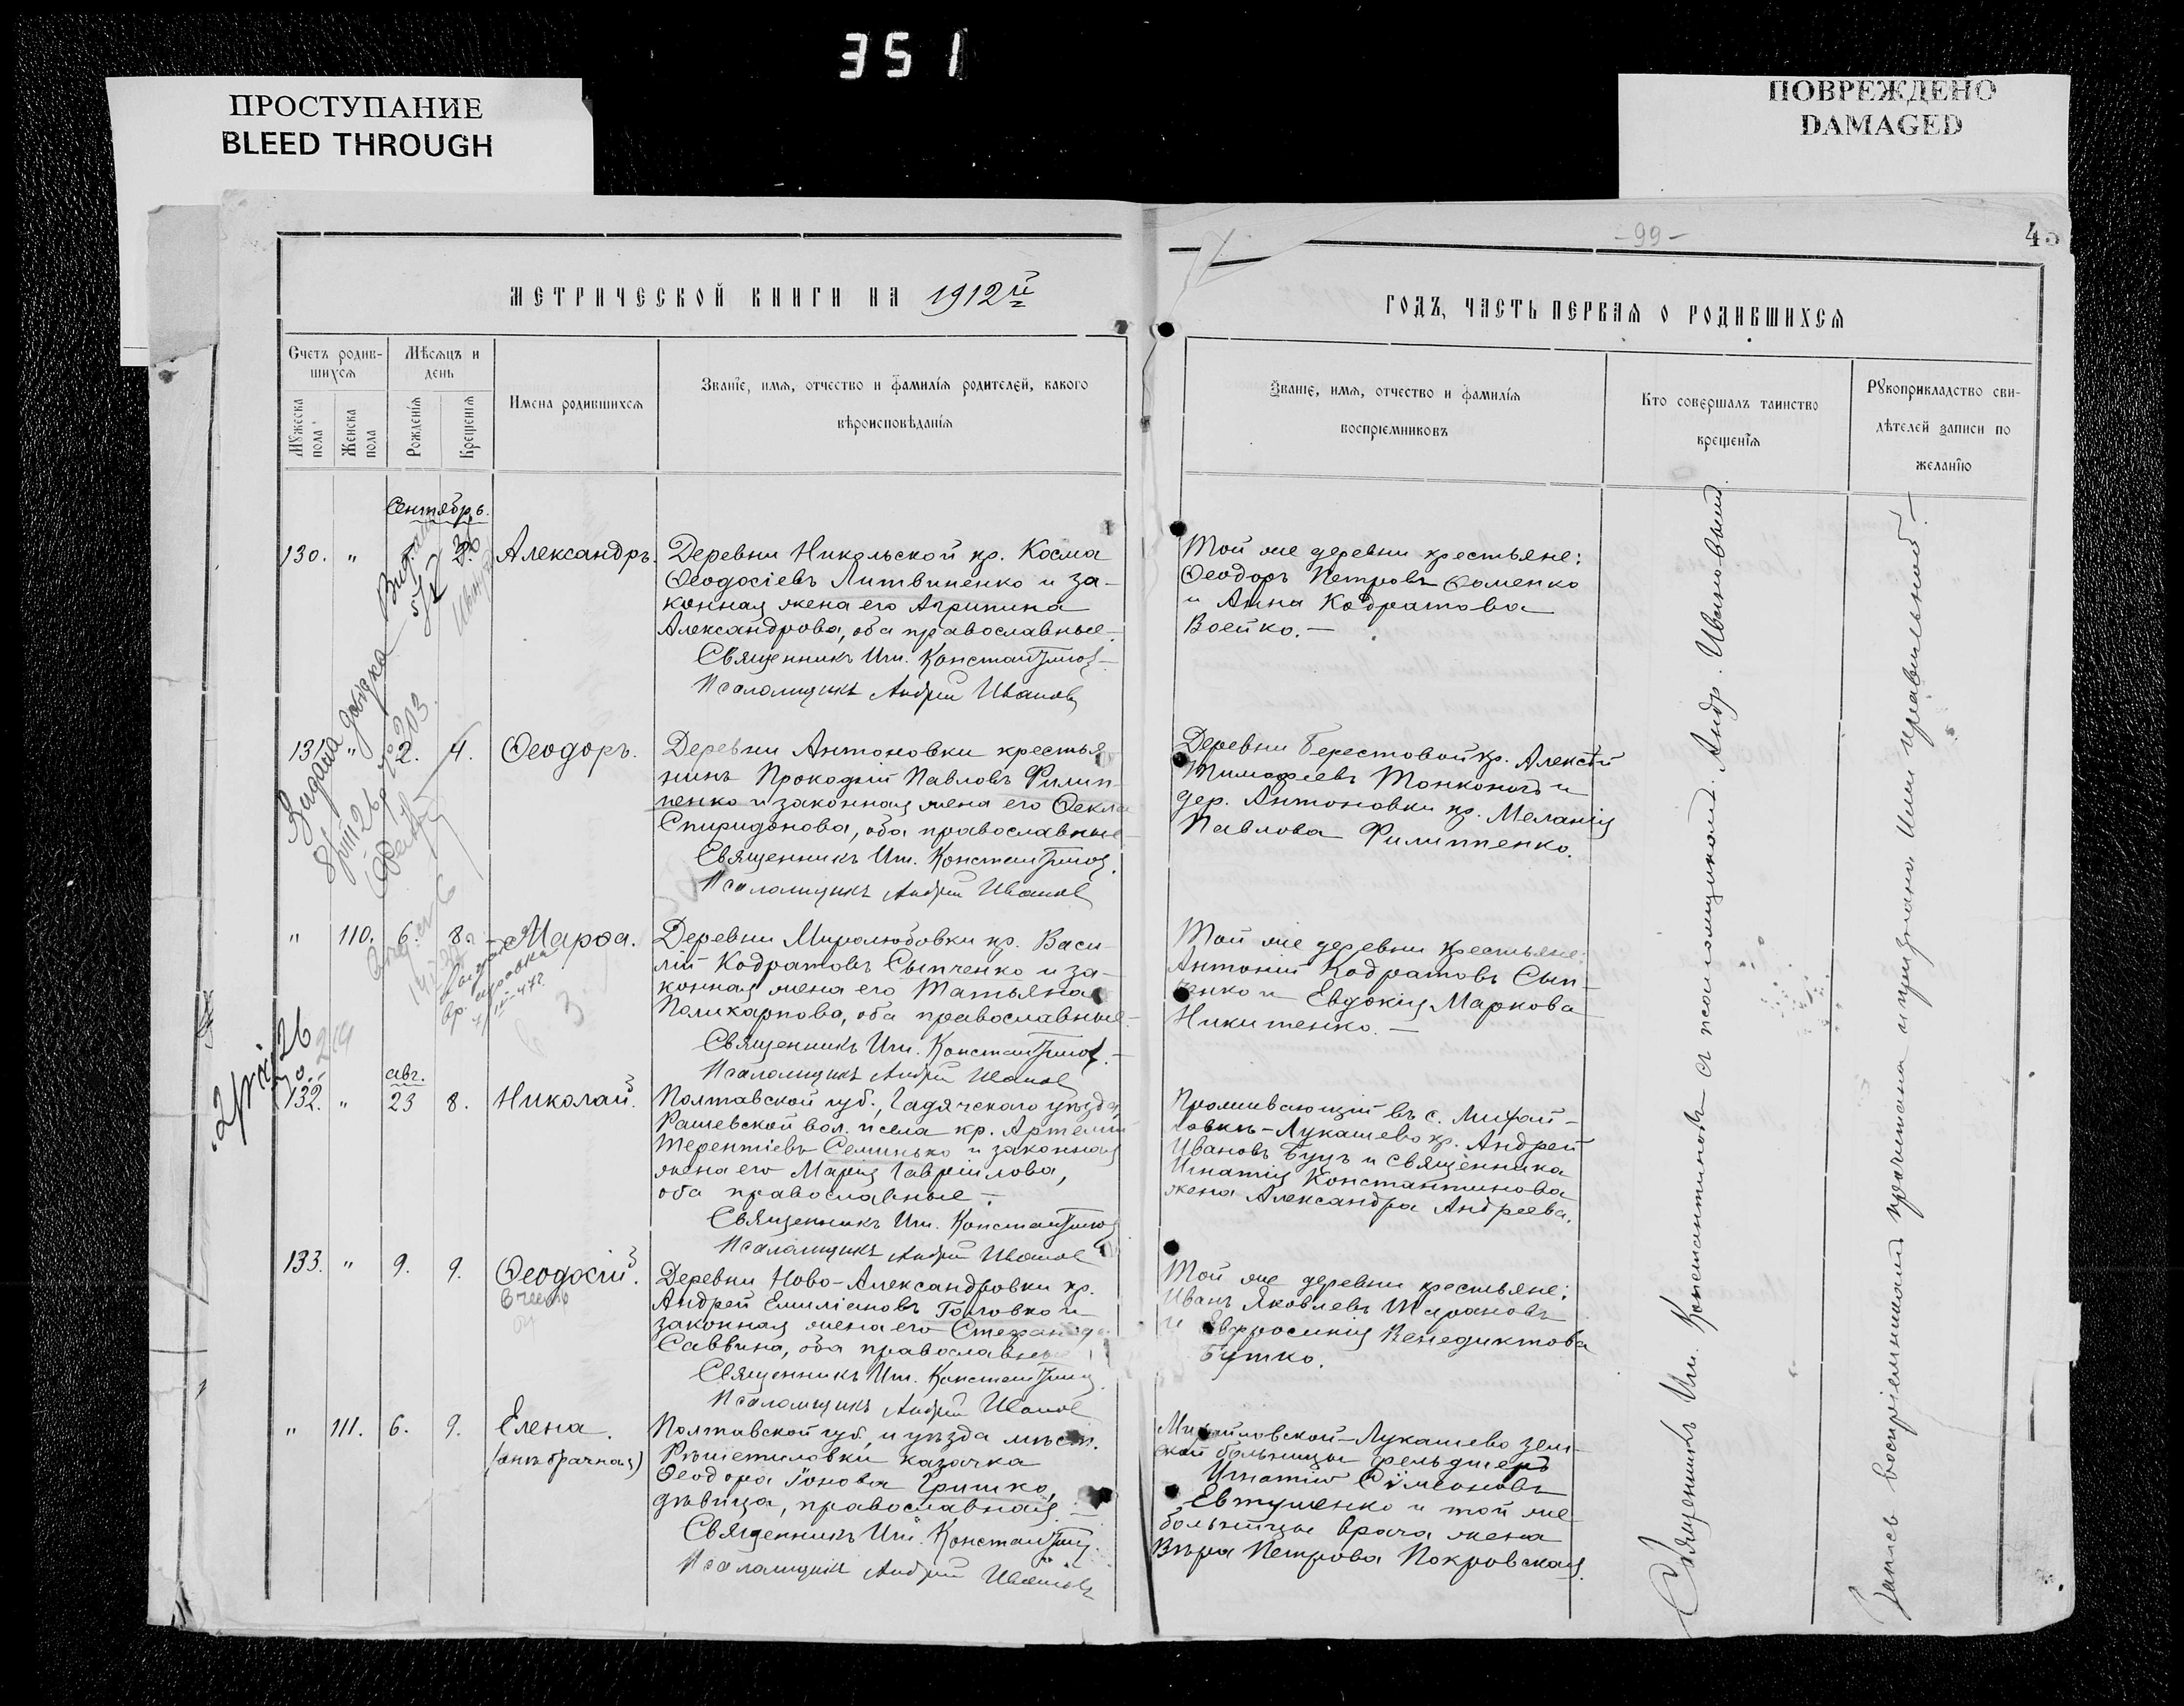 351
ПРОСТУПАНИЕ
BLEED THROUGH
ПОВРЕЖДЕНО
DAMAGED
-99-
45
МЕТРИЧЕСКОЙ КНИГИ НА 1912й
ГОДЪ, ЧАСТЬ ПЕРВАЯ О РОДИВШИХСЯ
Счетъ родив-
шихся
Мужеска
пола
Женска
пола
Мѣсяцъ и
день
Рожденія
Крещенія
Имена родившихся
Званіе, имя, отчество и фамилія родителей, какого
вѣроисповѣданія
Званіе, имя, отчество и фамилія
воспріемниковъ
Кто совершалъ таинство
крещенія
Рукоприкладство сви-
дѣтелей записи по
желанію
Сентябрь.
130. " Александръ.
Деревни Никольской кр. Косма
Ѳеодосіевъ Литвиненко и за-
конная жена его Агрипина
Александрова, оба православные.
Священникъ Иг. Константинов
Псаломщикъ Андрей Иванов
Той же деревни крестьяне:
Ѳеодоръ Петровъ Ѳоменко
и Анна Кодратова
Воейко.
131. " 2. 4. Ѳеодоръ.
Деревни Антоновки крестья
нинъ Прокофій Павловъ Филип
пенко и законная жена его Ѳекла
Спиридонова, оба православные
Священникъ Иг. Константинов
Псаломщикъ Андрей Иванов
Деревни Берестовой кр. Алексѣй
Тимофеевъ Тонконогъ и
дер. Антоновки кр. Меланія
Павлова Филиппенко.
" 110. 6. 8. Марѳа.
Деревни Миролюбовки кр. Васи-
лій Кодратовъ Сыпченко и за-
конная жена его Татьяна
Поликарпова, оба православные.
Священникъ Иг. Константинов
Псаломщикъ Андрей Иванов
Той же деревни крестьяне:
Антоній Кодратовъ Сып-
ченко и Евдокія Маркова
Никитенко.
авг.
132. " 23 8. Николай.
Полтавской губ., Гадячского уѣзда,
Рашевской вол. и села кр. Артемій
Терентіевъ Семинько и законная
жена его Марія Гавріилова,
оба православные.
Священникъ Иг. Константинов
Псаломщикъ Андрей Иванов
Проживающій въ с. Михай-
ловкѣ-Лукашево кр. Андрей
Ивановъ Буцъ и священника
Игнатія Константинова
жена Александра Андреева.
133. " 9. 9. Ѳеодосій.
Деревни Ново-Александровки кр.
Андрей Емиліановъ Головко и
законная жена его Стефанида
Саввина, оба православные
Священникъ Иг. Константинов
Псаломщикъ Андрей Иванов
Той же деревни крестьяне:
Иванъ Яковлевъ
и Евфросинія Венедиктова
Бутко.
" 111. 6. 9. Елена.
(внѣбрачная)
Полтавской губ. и уѣзда мѣст.
Рѣшетиловки казачка
Ѳеодора Іонова Гришко,
дѣвица, православная.
Священникъ Иг. Константинов
Псаломщикъ Андрей Ивановъ
Михайловской-Лукашево зем-
ской больницы фельдшеръ
Игнатій Симеоновъ
Евтушенко и той же
больницы врача жена
Вѣра Петрова Покровская.
Священникъ Иг. Константиновъ съ псаломщикомъ Андр. Ивановымъ.
Запись воспріемникамъ прочитана и признана ими правильной.